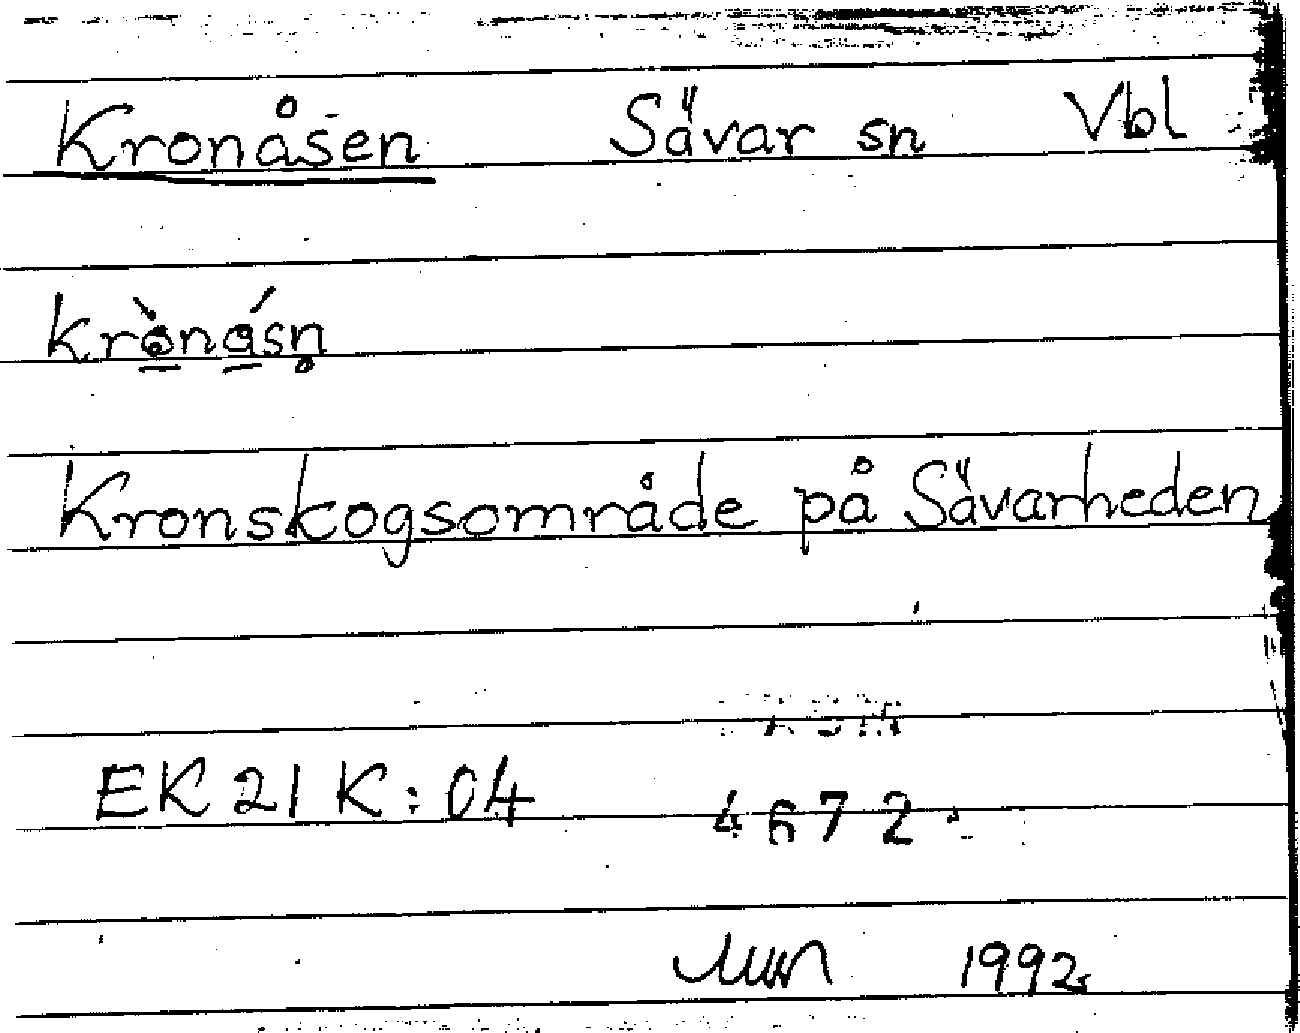 Kronåsen Sävar sn Vbl
krò̱ná̱sn̥
Kronskogsområde på Sävarheden
EK 21 K:04 4672
1992